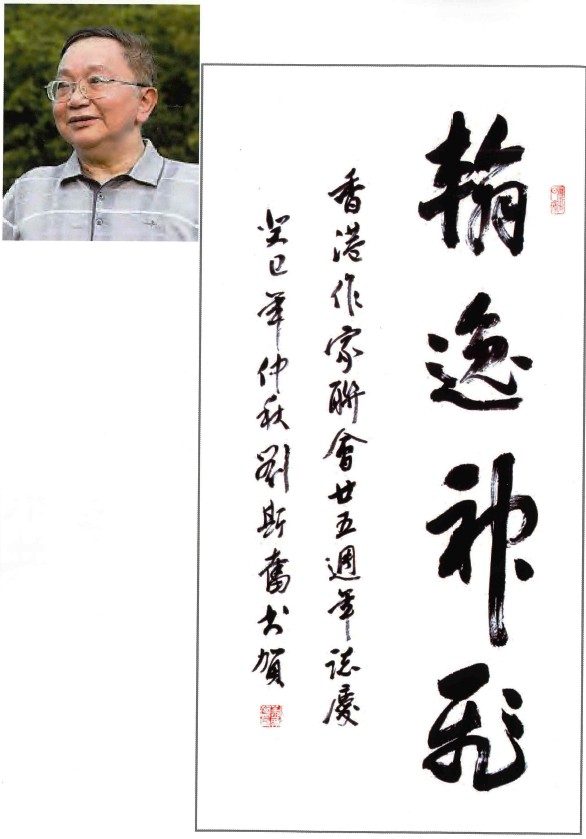 翰逸神飛
香港作家聯會廿五週年誌慶
癸巳年仲秋劉斯奮書賀